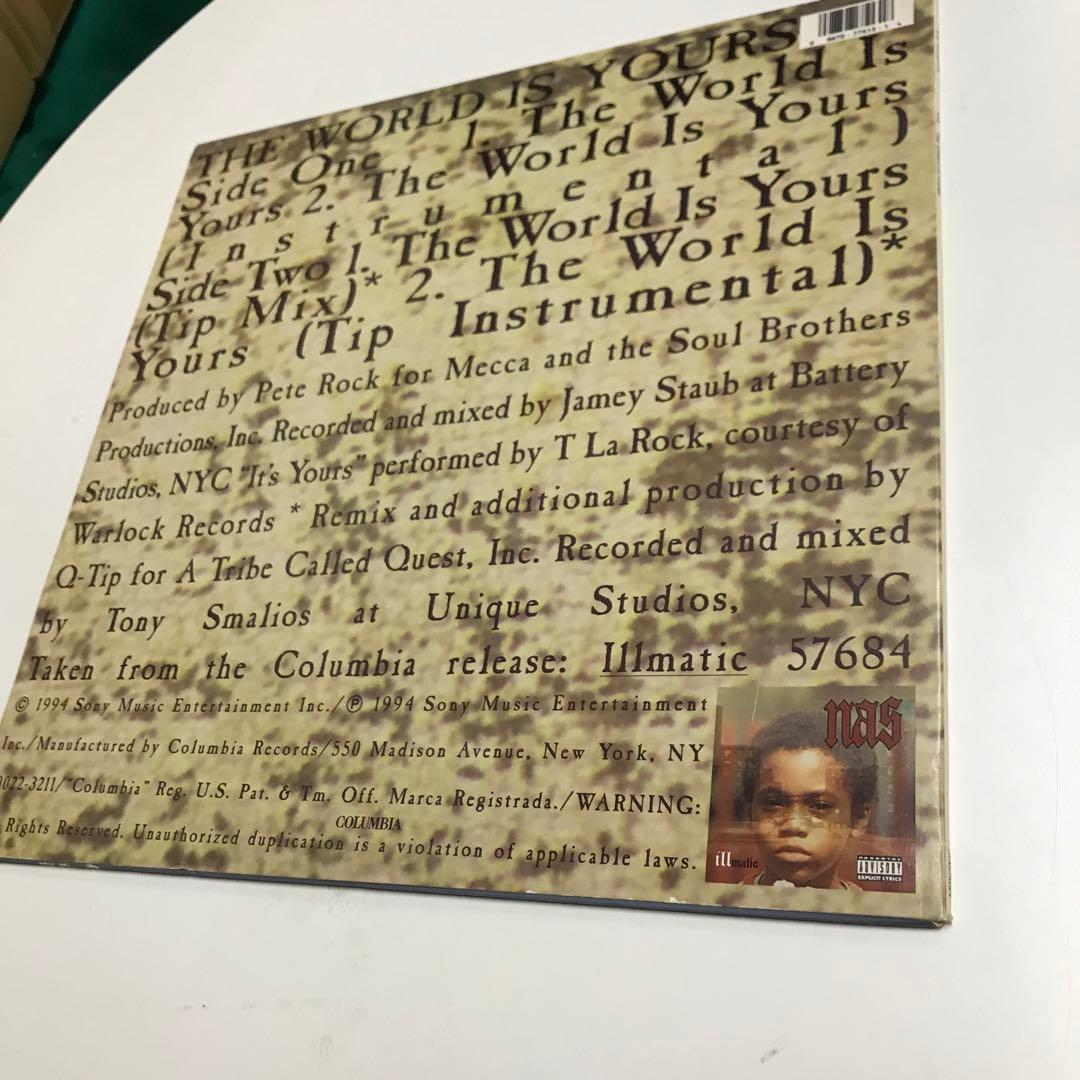 THE WORLD IS YOURS
Side One 1. The World Is
Yours 2. The World Is Yours
(Instrumental)
Side Two 1. The World Is Yours
(Tip Mix)* 2. The World Is
Yours (Tip Instrumental)*
Produced by Pete Rock for Mecca and the Soul Brothers
Productions, Inc. Recorded and mixed by Jamey Staub at Battery
Studios, NYC "It's Yours" performed by T La Rock, courtesy of
Warlock Records * Remix and additional production by
Q-Tip for A Tribe Called Quest, Inc. Recorded and mixed
by Tony Smalios at Unique Studios, NYC
Taken from the Columbia release: Illmatic 57684
© 1994 Sony Music Entertainment Inc./℗ 1994 Sony Music Entertainment
Inc./Manufactured by Columbia Records/550 Madison Avenue, New York, NY
022-3211/"Columbia" Reg. U.S. Pat. & Tm. Off. Marca Registrada./WARNING:
COLUMBIA
Rights Reserved. Unauthorized duplication is a violation of applicable laws.
nas
illmatic
PARENTAL
ADVISORY
EXPLICIT LYRICS